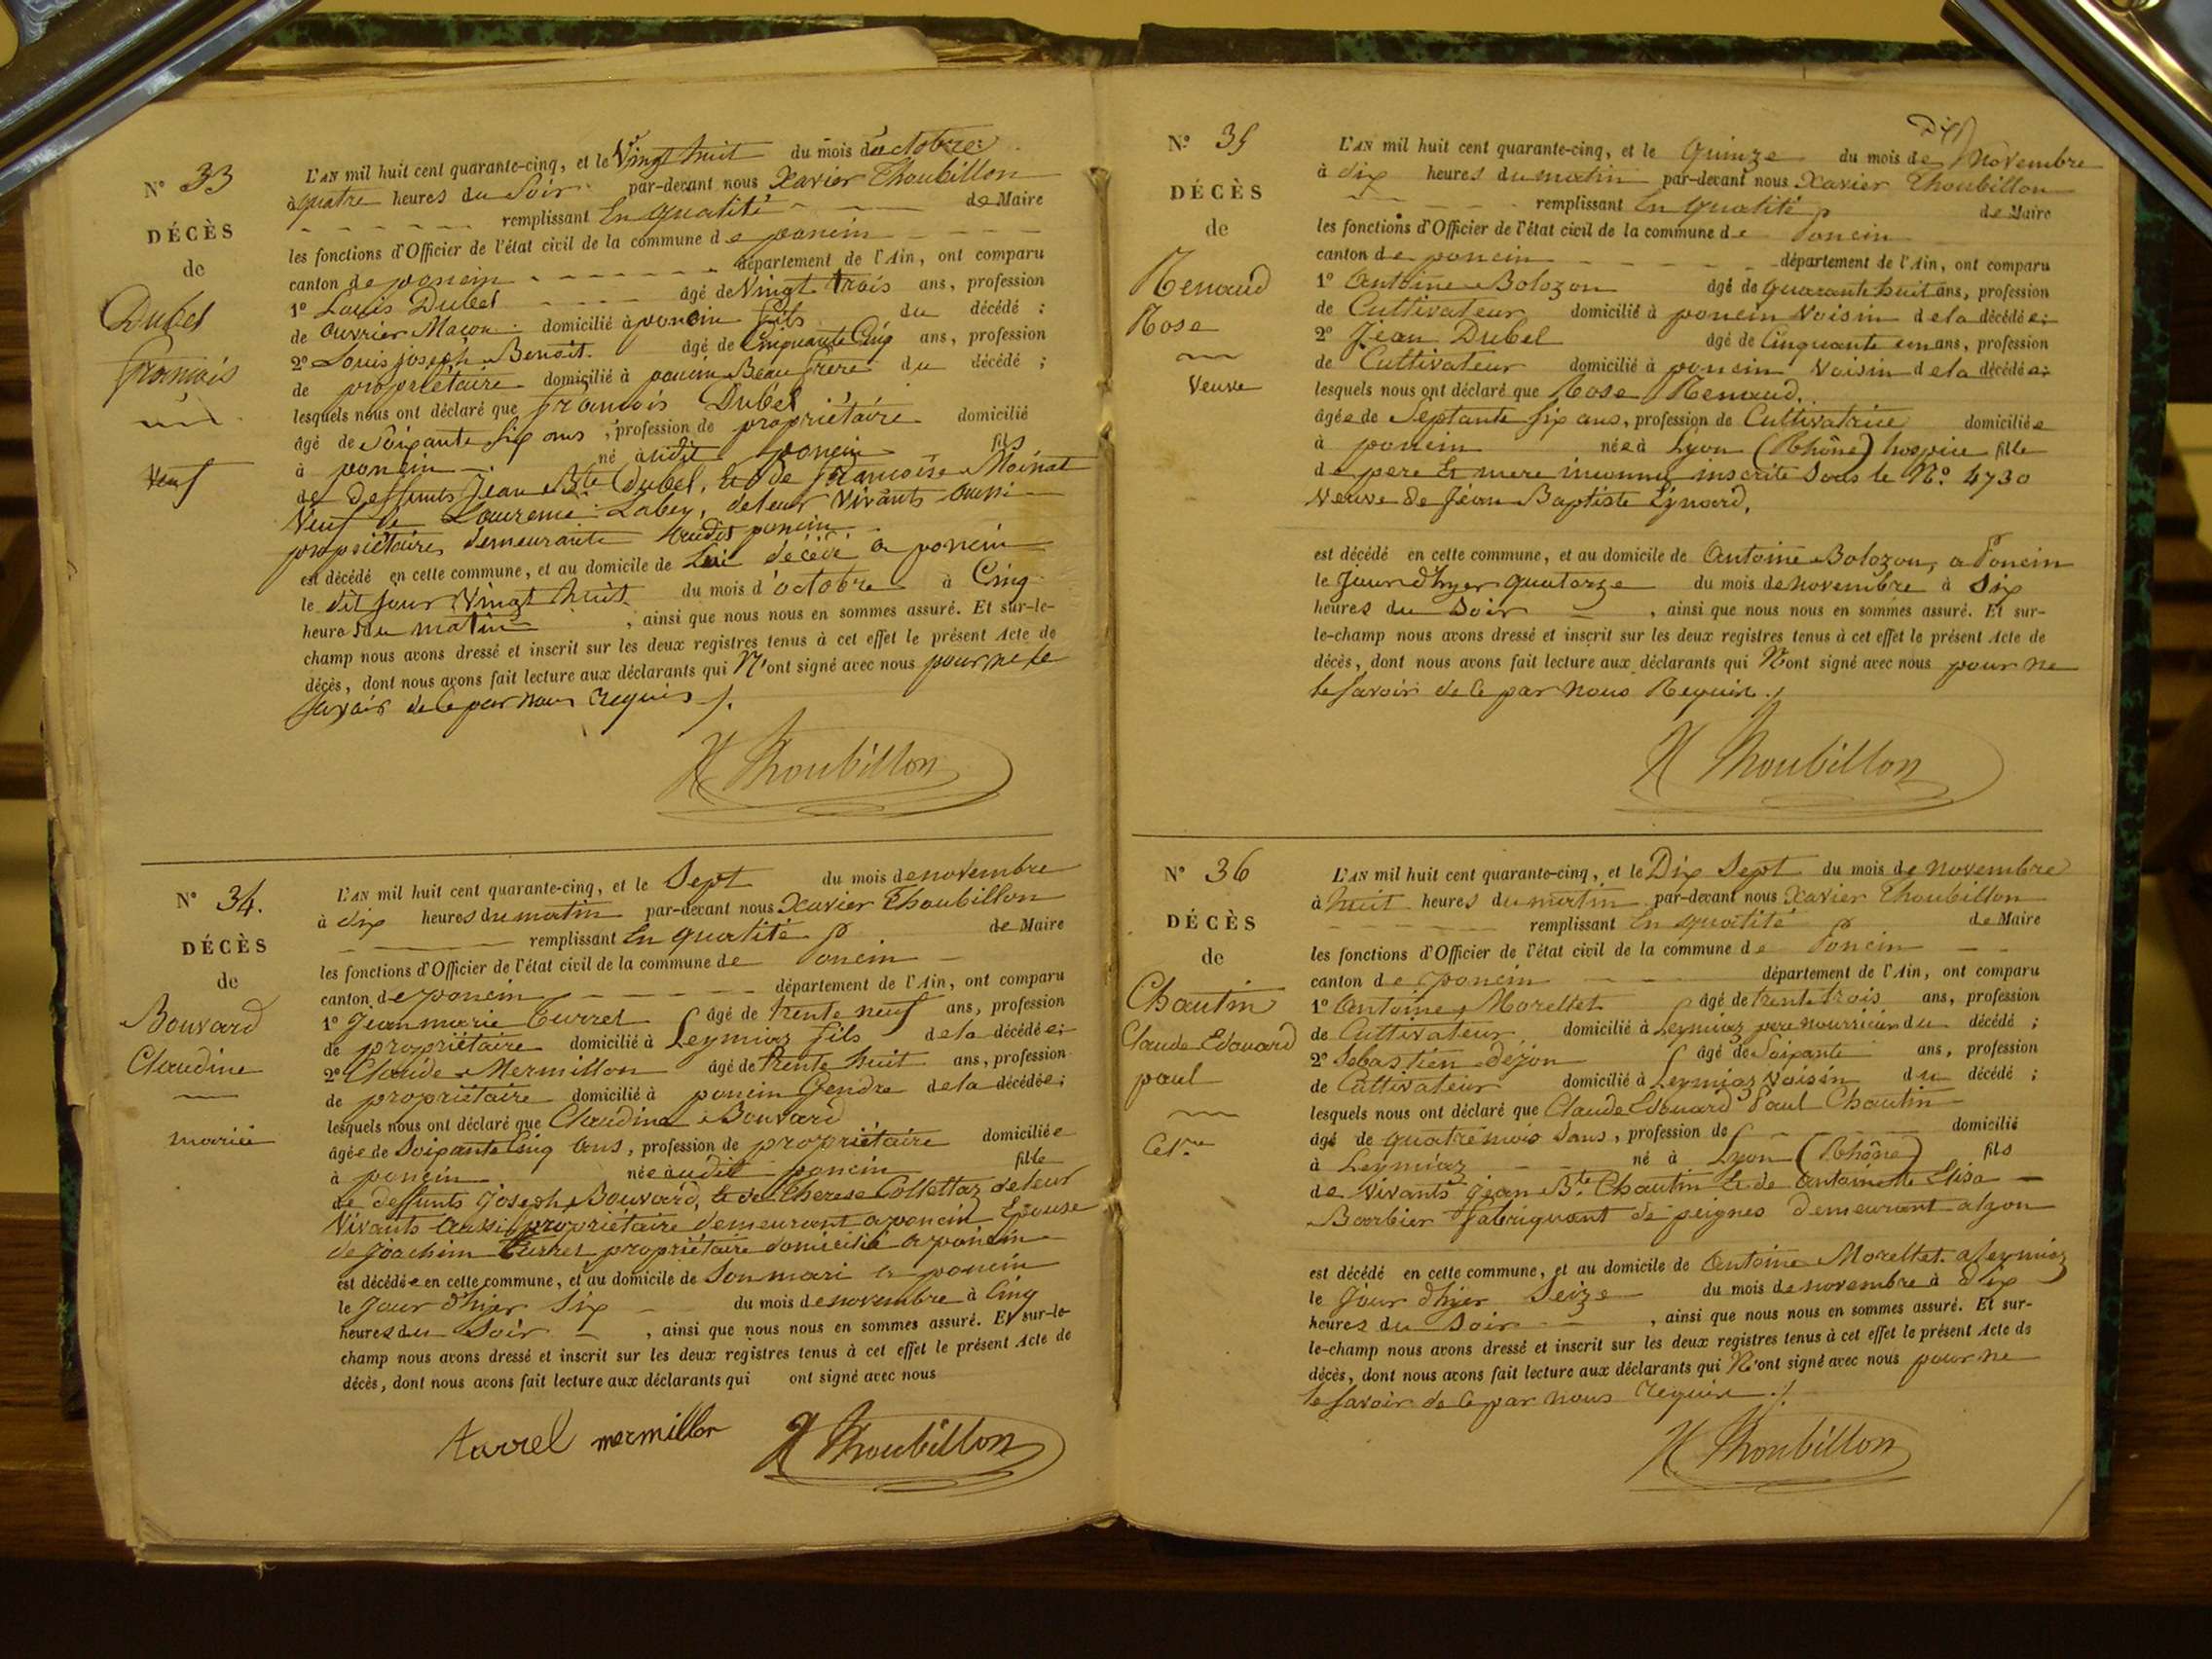 N° 33
DÉCÈS
de
Dubel
françois
Veuf
L'AN mil huit cent quarante-cinq, et le Vingt huit du mois d'octobre
à quatre heures du Soir par-devant nous Xavier Thoubillon
remplissant En qualité de Maire
les fonctions d'Officier de l'état civil de la commune de poncin
canton de poncin département de l'Ain, ont comparu
1° Louis Dubel âgé de Vingt trois ans, profession
de ouvrier Maçon domicilié à poncin fils du décédé ;
2° Louis joseph Benoit âgé de Cinquante Cinq ans, profession
de propriétaire domicilié à poncin Beau frere du décédé ;
lesquels nous ont déclaré que françois Dubel
âgé de Soixante six ans, profession de propriétaire domicilié
à poncin né audit poncin fils
de deffunts Jean Bte Dubel, et de françoise Moinat
Veuf de Laurence Labey, de leur Vivants aussi
propriétaires demeurants audit poncin
est décédé en cette commune, et au domicile de Lui décédé a poncin
le dit jour Vingt huit du mois d'octobre à Cinq
heures du matin, ainsi que nous nous en sommes assuré. Et sur-le-
champ nous avons dressé et inscrit sur les deux registres tenus à cet effet le présent Acte de
décès, dont nous avons fait lecture aux déclarants qui N'ont signé avec nous pour ne le
savoir de ce par nous requis ./.
X Thoubillon
N° 34.
DÉCÈS
de
Bouvard
Claudine
mariée
L'AN mil huit cent quarante-cinq, et le Sept du mois de novembre
à dix heures du matin par-devant nous Xavier Thoubillon
remplissant En qualité de Maire
les fonctions d'Officier de l'état civil de la commune de Poncin
canton de poncin département de l'Ain, ont comparu
1° Jean marie Turrel âgé de trente neuf ans, profession
de propriétaire domicilié à Leymiaz fils de la décédée ;
2° Claude Mermillon âgé de trente huit ans, profession
de propriétaire domicilié à poncin Gendre de la décédée ;
lesquels nous ont déclaré que Claudine Bouvard
âgée de Soixante Cinq ans, profession de propriétaire domiciliée
à poncin née audit poncin fille
de deffunts joseph Bouvard, et de Therese Collettaz de leur
Vivants aussi propriétaire demeurant a poncin Epouse
de joachim Turrel propriétaire domicilié a poncin
est décédée en cette commune, et au domicile de Son mari a poncin
le jour d'hyer Six du mois de novembre à Cinq
heures du Soir, ainsi que nous nous en sommes assuré. Et sur-le-
champ nous avons dressé et inscrit sur les deux registres tenus à cet effet le présent Acte de
décès, dont nous avons fait lecture aux déclarants qui ont signé avec nous
turrel mermillon X Thoubillon
N° 35
DÉCÈS
de
Renaud
Rose
Veuve
L'AN mil huit cent quarante-cinq, et le Quinze du mois de Novembre
à dix heures du matin par-devant nous Xavier Thoubillon
remplissant En qualité de Maire
les fonctions d'Officier de l'état civil de la commune de Poncin
canton de poncin département de l'Ain, ont comparu
1° Antoine Bolozon âgé de quarante huit ans, profession
de Cultivateur domicilié à poncin Voisin de la décédée ;
2° Jean Dubel âgé de Cinquante un ans, profession
de Cultivateur domicilié à poncin Voisin de la décédée ;
lesquels nous ont déclaré que Rose Renaud.
âgée de Septante six ans, profession de Cultivatrice domiciliée
à poncin née à Lyon (Rhône) hospice fille
de pere Et mere inconnu inscrite sous le N° 4730
Veuve de Jéan Baptiste Eynard.
est décédé en cette commune, et au domicile de Antoine Bolozon, a Poncin
le jour d'hyer quatorze du mois de novembre à Six
heures du Soir, ainsi que nous nous en sommes assuré. Et sur-
le-champ nous avons dressé et inscrit sur les deux registres tenus à cet effet le présent Acte de
décès, dont nous avons fait lecture aux déclarants qui N'ont signé avec nous pour ne
le savoir de ce par nous Requis ./.
X Thoubillon
N° 36
DÉCÈS
de
Chautin
Claude Edouard
paul
L'AN mil huit cent quarante-cinq, et le Dix Sept du mois de novembre
à huit heures du matin par-devant nous Xavier Thoubillon
remplissant En qualité de Maire
les fonctions d'Officier de l'état civil de la commune de Poncin
canton de poncin département de l'Ain, ont comparu
1° Antoine Morellet âgé de trente trois ans, profession
de Cultivateur domicilié à Leymiaz pere nourricier du décédé ;
2° Sebastien dejon âgé de Soixante ans, profession
de Cultivateur domicilié à Leymiaz Voisin du décédé ;
lesquels nous ont déclaré que Claude Edouard Paul Chautin
âgé de quatre mois Sans, profession de domicilié
à Leymiaz né à Lyon (Rhône) fils
de Vivants jean Bte Chautin Et de Antoinette Elisa
Barbier fabriquant de peignes demeurant a lyon
est décédé en cette commune, et au domicile de Antoine Morellet a leymiaz
le jour d'hyer Seize du mois de novembre à dix
heures du Soir, ainsi que nous nous en sommes assuré. Et sur-
le-champ nous avons dressé et inscrit sur les deux registres tenus à cet effet le présent Acte de
décès, dont nous avons fait lecture aux déclarants qui N'ont signé avec nous pour ne
le savoir de ce par nous requis ./.
X Thoubillon